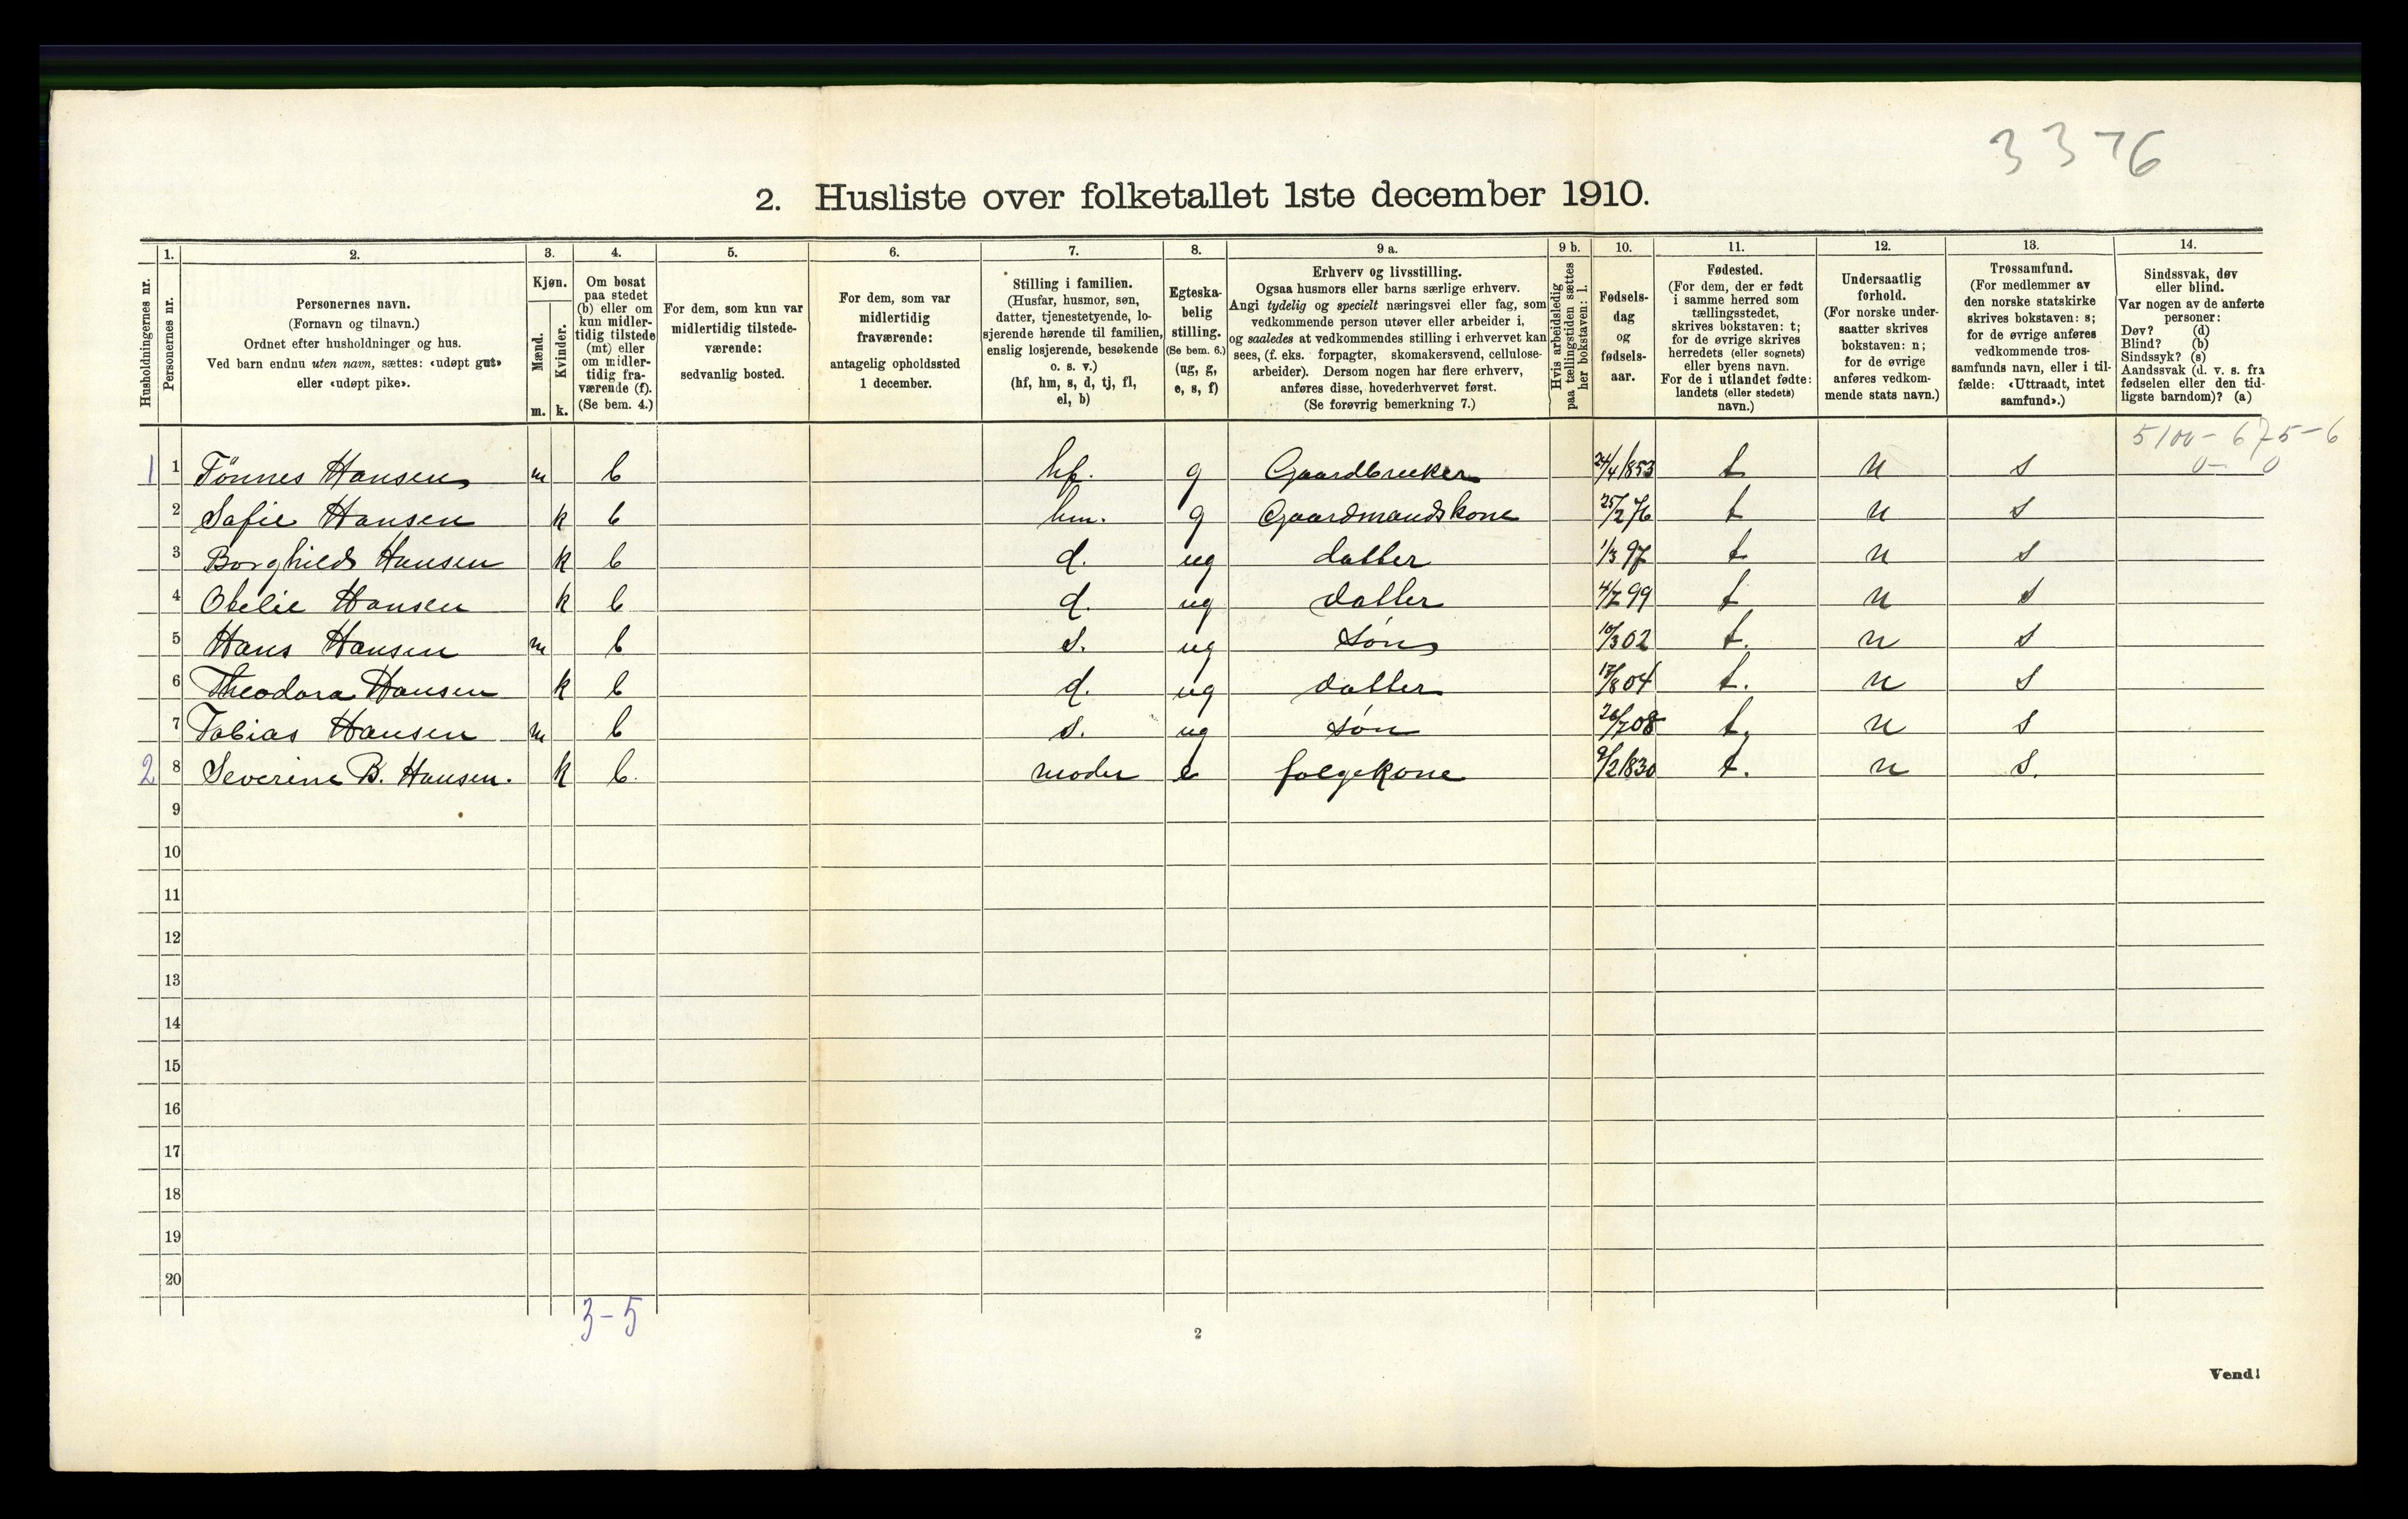 3376
2. Husliste over folketallet 1ste december 1910.
Husholdningernes nr.
1. Personernes nr.
2. Personernes navn.
(Fornavn og tilnavn.)
Ordnet efter husholdninger og hus.
Ved barn endnu uten navn, sættes: «udøpt gut»
eller «udøpt pike».
3. Kjøn.
Mænd. m.
Kvinder. k.
4. Om bosat
paa stedet
(b) eller om
kun midler-
tidig tilstede
(mt) eller
om midler-
tidig fra-
værende (f).
(Se bem. 4.)
5. For dem, som kun var
midlertidig tilstede-
værende:
sedvanlig bosted.
6. For dem, som var
midlertidig
fraværende:
antagelig opholdssted
1 december.
7. Stilling i familien.
(Husfar, husmor, søn,
datter, tjenestetyende, lo-
sjerende hørende til familien,
enslig losjerende, besøkende
o. s. v.)
(hf, hm, s, d, tj, fl,
el, b)
8. Egteska-
belig
stilling.
(Se bem. 6.)
(ug, g,
e, s, f)
9 a. Erhverv og livsstilling.
Ogsaa husmors eller barns særlige erhverv.
Angi tydelig og specielt næringsvei eller fag, som
vedkommende person utøver eller arbeider i,
og saaledes at vedkommendes stilling i erhvervet kan
sees, (f. eks. forpagter, skomakersvend, cellulose-
arbeider). Dersom nogen har flere erhverv,
anføres disse, hovederhvervet først.
(Se forøvrig bemerkning 7.)
9 b. Hvis arbeidsledig
paa tællingstiden sættes
her bokstaven: l.
10. Fødsels-
dag
og
fødsels-
aar.
11. Fødested.
(For dem, der er født
i samme herred som
tællingsstedet,
skrives bokstaven: t;
for de øvrige skrives
herredets (eller sognets)
eller byens navn.
For de i utlandet fødte:
landets (eller stedets)
navn.)
12. Undersaatlig
forhold.
(For norske under-
saatter skrives
bokstaven: n;
for de øvrige
anføres vedkom-
mende stats navn.)
13. Trossamfund.
(For medlemmer av
den norske statskirke
skrives bokstaven: s;
for de øvrige anføres
vedkommende tros-
samfunds navn, eller i til-
fælde: «Uttraadt, intet
samfund».)
14. Sindssvak, døv
eller blind.
Var nogen av de anførte
personer:
Døv? (d)
Blind? (b)
Sindssyk? (s)
Aandssvak (d. v. s. fra
fødselen eller den tid-
ligste barndom)? (a)
5100 - 675 - 6
0 - 0
1 1 Tönnes Hansen m b hf. g Gaardbruker 24/4 1853 t n s
2 Sofie Hansen k b hm. g Gaardmandskone 25/2 76 t n s
3 Borghild Hansen k b d. ug datter 1/3 97 t n s
4 Otelie Hansen k b d. ug datter 4/7 99 t n s
5 Hans Hansen m b s. ug søn 10/3 02 t. n s
6 Theodora Hansen k b d. ug datter 17/8 04 t. n s
7 Tobias Hansen m b s. ug søn 26/7 08 t. n s
2 8 Severine B. Hansen. k b. moder e folgekone 9/2 1830 t. n s.
9
10
11
12
13
14
15
16
17
18
19
20
3-5
2
Vend!